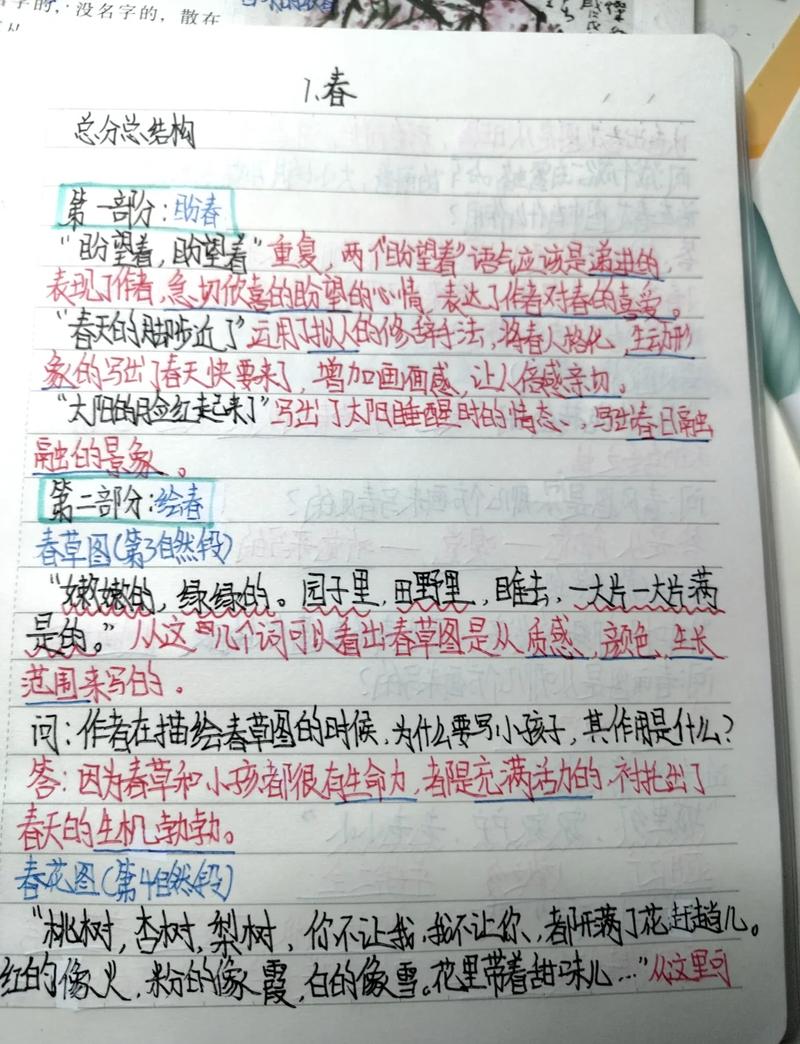 没名字的，散在
1、春
总分总结构
第一部分：盼春
“盼望着，盼望着”重复，两个“盼望着”语气应该是递进的，
表现了作者，急切欣喜的盼望的心情，表达了作者对春的喜爱。
“春天的脚步近了”运用了拟人的修辞手法，将春人格化，生动形
象的写出了春天快要来了，增加画面感，让人倍感亲切。
“太阳的脸红起来了”写出了太阳睡醒时的情态、写出春日融
融的景象。
第二部分：绘春
春草图（第3自然段）
“嫩嫩的，绿绿的。园子里，田野里，瞧去，一大片一大片满
是的。”从这几个词可以看出春草图是从质感、颜色、生长
范围来写的。
问：作者在描绘春草图的时候，为什么要写小孩子，其作用是什么？
答：因为春草和小孩都很有生命力，都是充满活力的，衬托出了
春天的生机勃勃。
春花图（第4自然段）
“桃树，杏树，梨树，你不让我，我不让你，都开满了花赶趟儿。
红的像火，粉的像霞，白的像雪。花里带着甜味儿…”从这里可